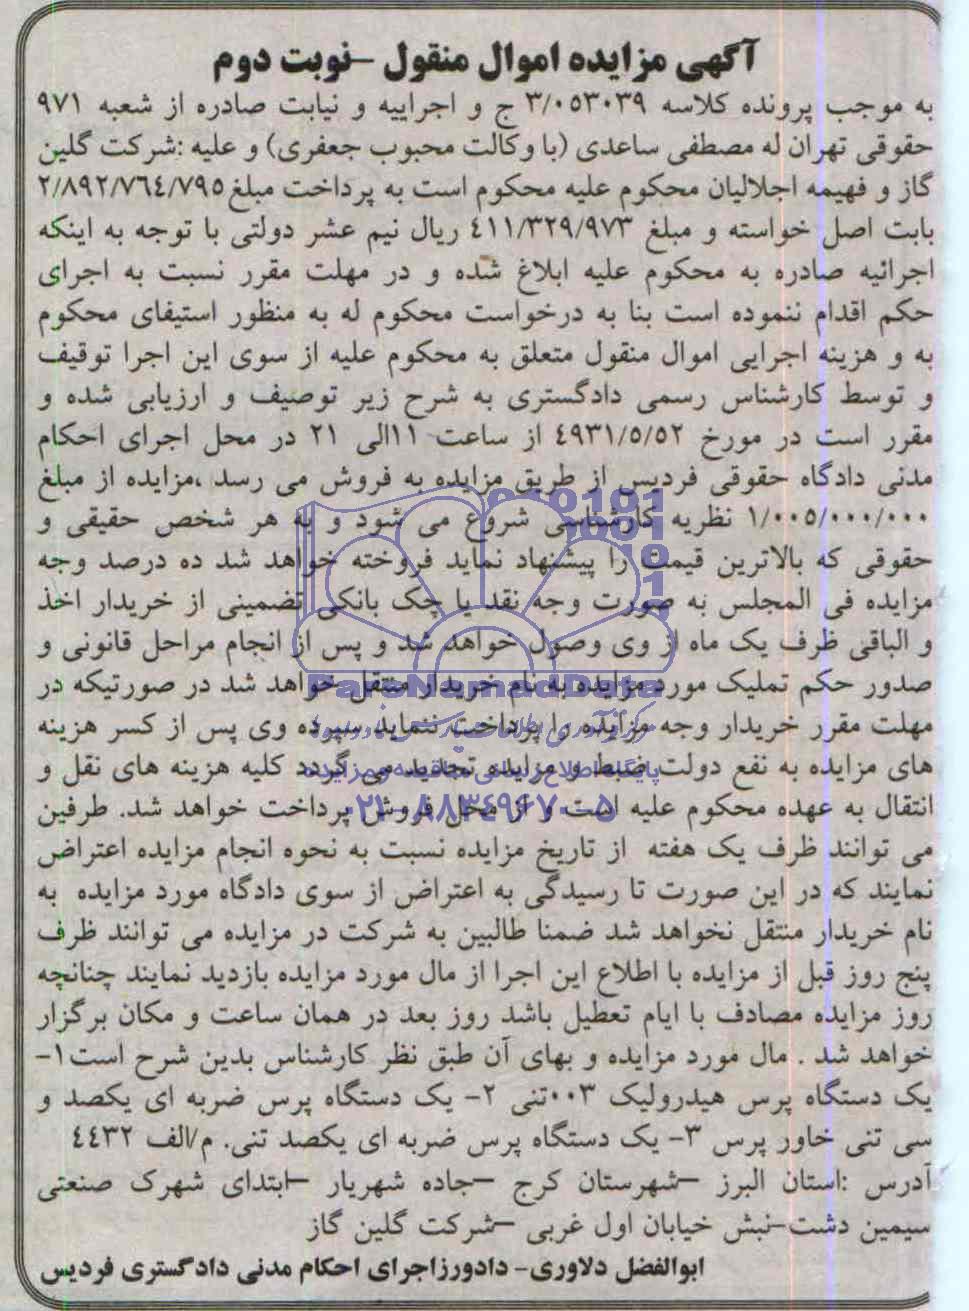 آگهی مزایده اموال منقول –نوبت دوم
به موجب پرونده کلاسه ۳/۰۵۳۰۳۹ ج و اجراییه و نیابت صادره از شعبه ۹۷۱
حقوقی تهران له مصطفی ساعدی (با وکالت محبوب جعفری) و علیه :شرکت گلین
گاز و فهیمه اجلالیان محکوم علیه محکوم است به پرداخت مبلغ ۲/۸۹۲/۷۶٤/۷۹۵
بابت اصل خواسته و مبلغ ٤۱۱/۳۲۹/۹۷۳ ریال نیم عشر دولتی با توجه به اینکه
اجرائیه صادره به محکوم علیه ابلاغ شده و در مهلت مقرر نسبت به اجرای
حکم اقدام ننموده است بنا به درخواست محکوم له به منظور استیفای محکوم
به و هزینه اجرایی اموال منقول متعلق به محکوم علیه از سوی این اجرا توقیف
و توسط کارشناس رسمی دادگستری به شرح زیر توصیف و ارزیابی شده و
مقرر است در مورخ ٤۹۳۱/۵/۵۲ از ساعت ۱۱الی ۲۱ در محل اجرای احکام
مدنی دادگاه حقوقی فردیس از طریق مزایده به فروش می رسد ،مزایده از مبلغ
۱/۰۰۵/۰۰۰/۰۰۰ نظریه کارشناسی شروع می شود و به هر شخص حقیقی و
حقوقی که بالاترین قیمت را پیشنهاد نماید فروخته خواهد شد ده درصد وجه
مزایده فی المجلس به صورت وجه نقد یا چک بانکی تضمینی از خریدار اخذ
و الباقی ظرف یک ماه از وی وصول خواهد شد و پس از انجام مراحل قانونی و
صدور حکم تملیک مورد مزایده به نام خریدار منتقل خواهد شد در صورتیکه در
مهلت مقرر خریدار وجه مزایده را پرداخت ننماید سپرده وی پس از کسر هزینه
های مزایده به نفع دولت ضبط و مزایده تجدید می گردد کلیه هزینه های نقل و
انتقال به عهده محکوم علیه است و از محل فروش پرداخت خواهد شد. طرفین
می توانند ظرف یک هفته از تاریخ مزایده نسبت به نحوه انجام مزایده اعتراض
نمایند که در این صورت تا رسیدگی به اعتراض از سوی دادگاه مورد مزایده به
نام خریدار منتقل نخواهد شد ضمنا طالبین به شرکت در مزایده می توانند ظرف
پنج روز قبل از مزایده با اطلاع این اجرا از مال مورد مزایده بازدید نمایند چنانچه
روز مزایده مصادف با ایام تعطیل باشد روز بعد در همان ساعت و مکان برگزار
خواهد شد . مال مورد مزایده و بهای آن طبق نظر کارشناس بدین شرح است ۱-
یک دستگاه پرس هیدرولیک ۰۰۳تنی ۲- یک دستگاه پرس ضربه ای یکصد و
سی تنی خاور پرس ۳- یک دستگاه پرس ضربه ای یکصد تنی. م/الف ٤٤۳۲
آدرس :استان البرز –شهرستان کرج –جاده شهریار –ابتدای شهرک صنعتی
سیمین دشت–نبش خیابان اول غربی –شرکت گلین گاز
ابوالفضل دلاوری- دادورزاجرای احکام مدنی دادگستری فردیس
ParsNamadData
۰۲۱-۸۸۳٤۹٦۷۰-۵